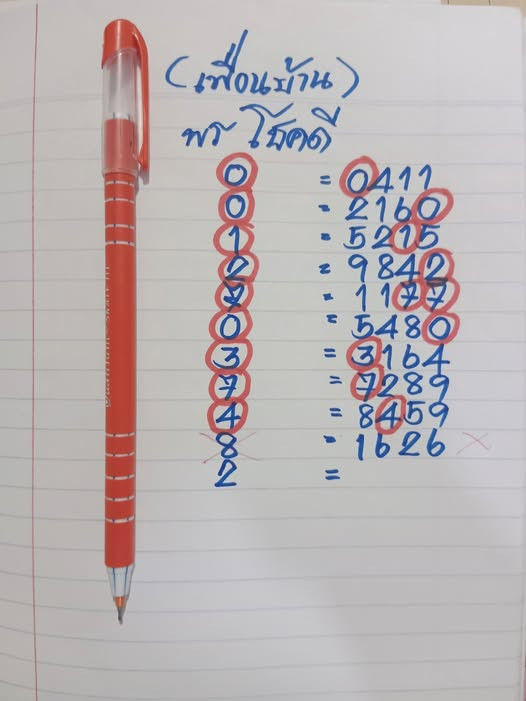 (เพื่อนบ้าน)
พร โชคดี
0 = 0411
0 = 2160
1 = 5215
2 = 9842
7 = 1177
0 = 5480
3 = 3164
7 = 7289
4 = 8459
8 = 1626 ×
2 =